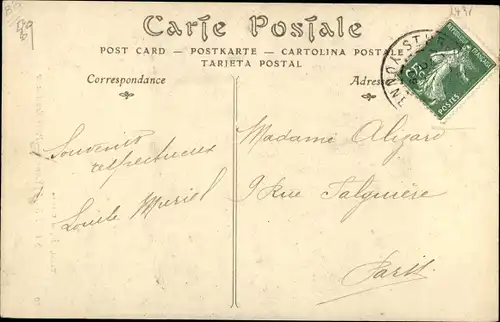 Carte Postale
POST CARD — POSTKARTE — CARTOLINA POSTALE
TARJETA POSTAL
Correspondance
Adresse
Souvenirs
respectueux
Louise Muriel
Madame Alizard
9 Rue Falguière
Paris
REPUBLIQUE FRANÇAISE
POSTES